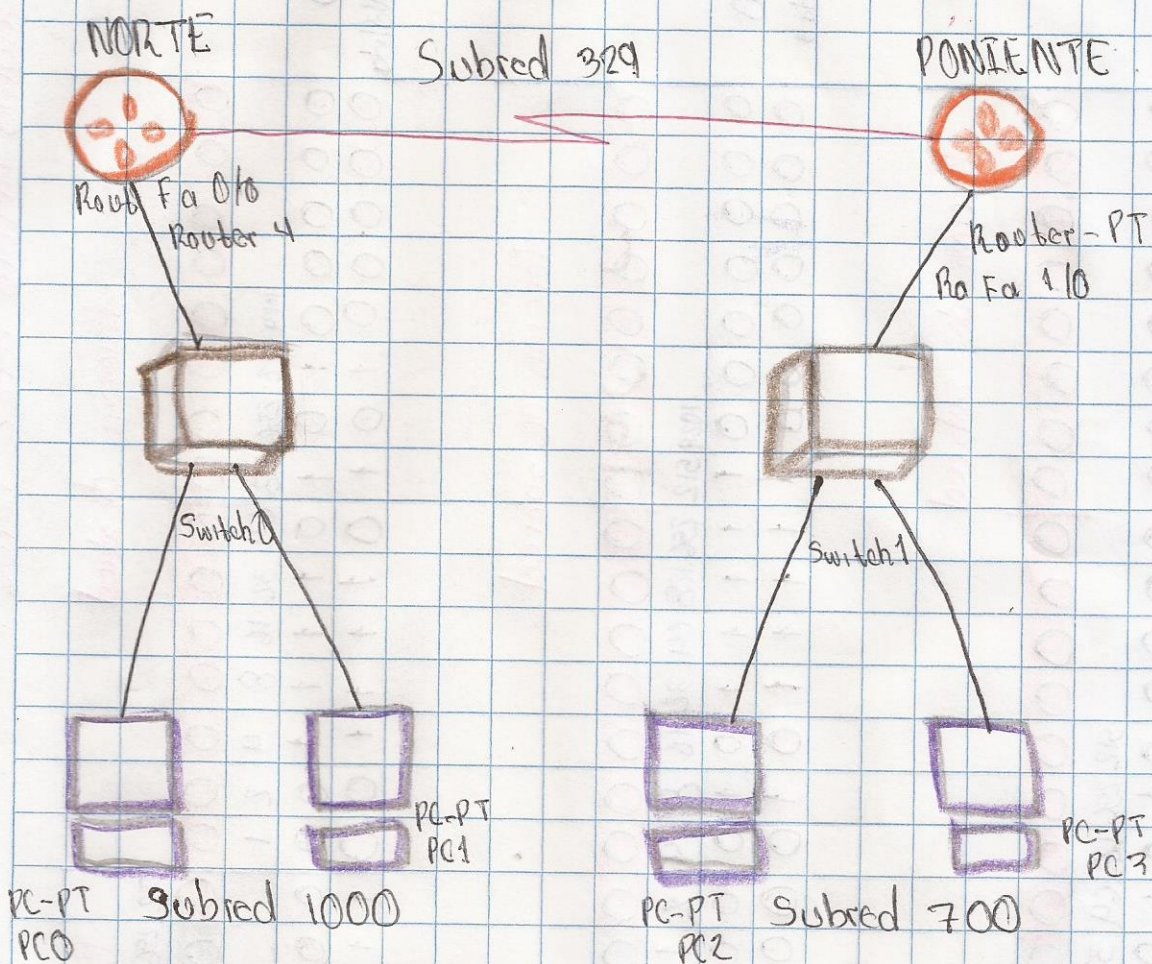 NORTE
Subred 329
PONIENTE
Rout Fa 0/0
Router 4
Router-PT
Ro Fa 1/0
Switch0
Switch1
PC-PT
PC1
PC-PT
PC3
PC-PT
PC0
Subred 1000
PC-PT
PC2
Subred 700